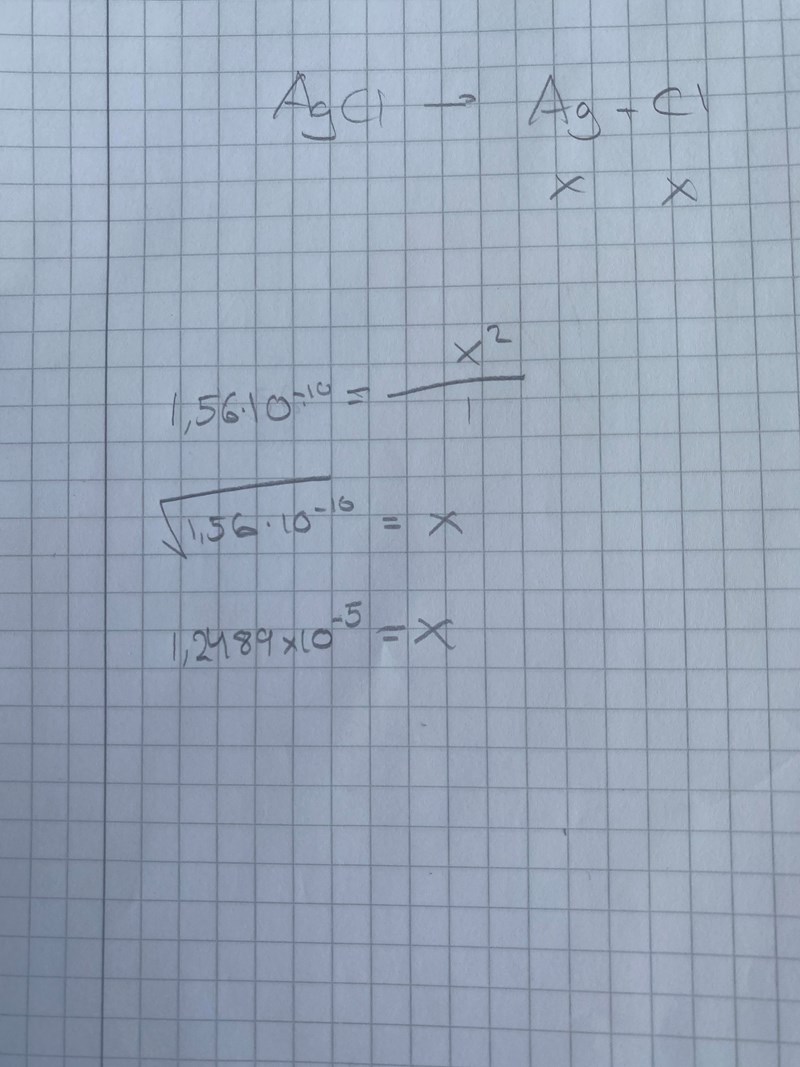 AgCl → Ag + Cl
x x
1,56·10⁻¹⁰ = x² / 1
√1,56·10⁻¹⁰ = x
1,2489×10⁻⁵ = x